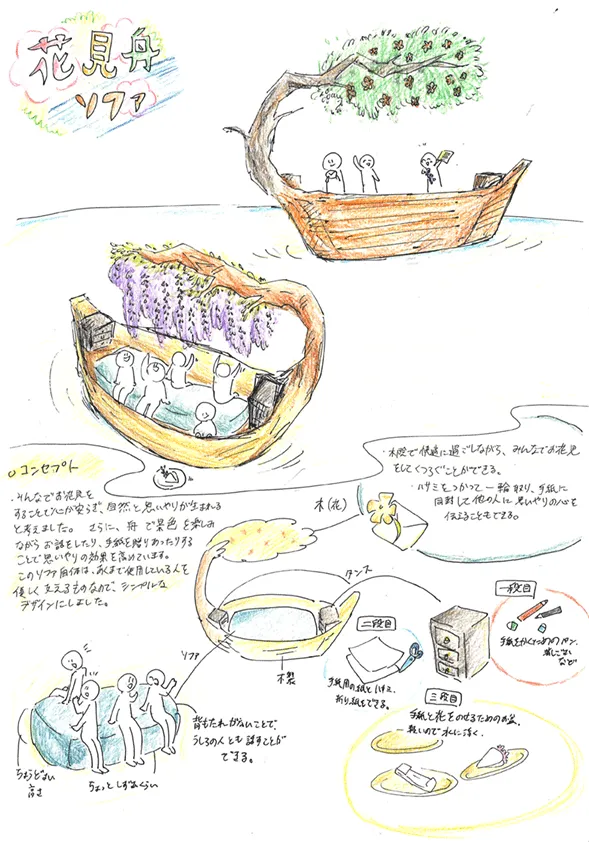 花見舟
ソファ
○コンセプト
・みんなでお花見を
することで心が安らぎ、自然と思いやりが生まれる
と考えました。さらに、舟で景色を楽しみ
ながらお話をしたり、手紙を贈りあったりする
ことで思いやりの効果を高めています。
このソファ自体は、あくまで使用している人を
優しく支えるものなので、シンプルな
デザインにしました。
・木陰で快適に過ごしながら、みんなでお花見
をしてくつろぐことができる。
・ハサミをつかって一輪取り、手紙に
同封して他の人に思いやりの心を
伝えることもできる。
木(花)
タンス
ソファ
木製
一段目
手紙をかくためのペン、
消しごむ
など
二段目
手紙用の紙とハサミ、
折り紙もできる。
三段目
手紙と花をのせるためのお盆。
軽いので水に浮く。
背もたれがないことで、
うしろの人とも話すことが
できる。
ちょうどよい
高さ
ちょっとしずむくらい